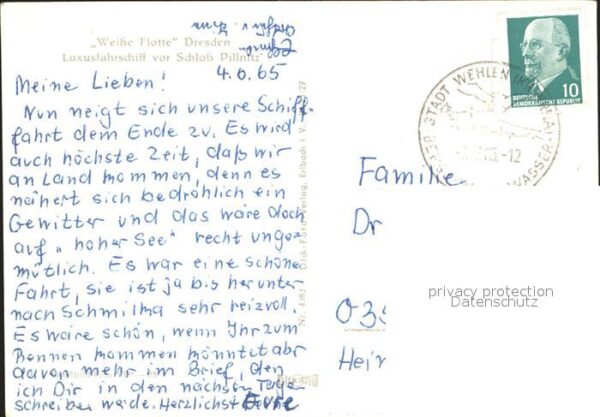 „Weiße Flotte" Dresden
Luxusfahrschiff vor Schloß Pillnitz
4.6.65
Meine Lieben!
Nun neigt sich unsere Schiff-
fahrt dem Ende zu. Es wird
auch höchste Zeit, daß wir
an Land kommen, denn es
nähert sich bedrohlich ein
Gewitter und das wäre doch
auf „hoher See" recht unge-
mütlich. Es war eine schöne
Fahrt, sie ist ja bis herunter
nach Schmilka sehr reizvoll.
Es wäre schön, wenn Ihr zum
Rennen kommen könntet abr
davon mehr im Brief, den
ich Dir in den nächsten Tage
schreiben werde. Herzlichst Eure
Nr. 4382 Dick-Foto-Verlag, Erlbach i. V.
27
10
DEUTSCHE
DEMOKRATISCHE REPUBLIK
STADT WEHLEN
Familie
Dr
035
Hei
privacy protection
Datenschutz